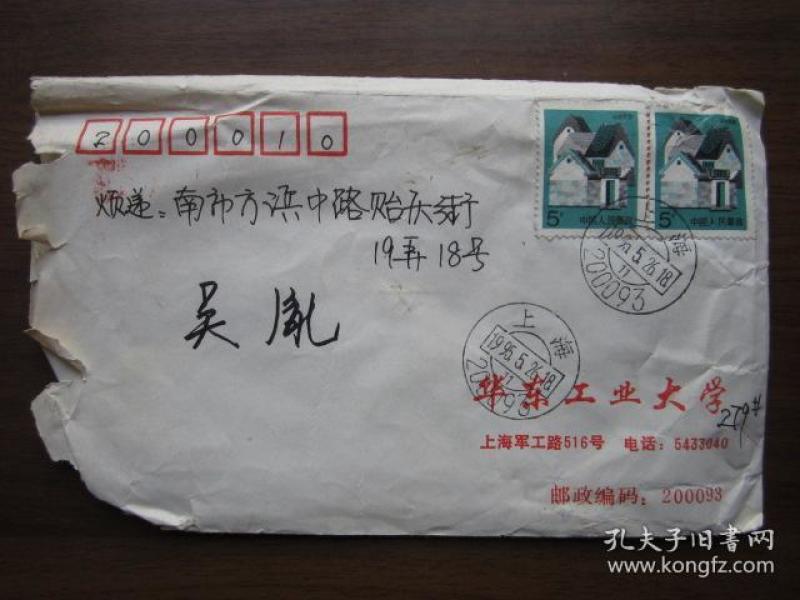 200010
烦递：南市方浜中路贻庆街
19弄18号
吴胤
5分
中国人民邮政
5分
中国人民邮政
上海
1995.5.26.18
11
200093
上海
1995.5.26.18
11
200093
华东工业大学
279#
上海军工路516号 电话：5433040
邮政编码：200093
孔夫子旧書网
www.kongfz.com